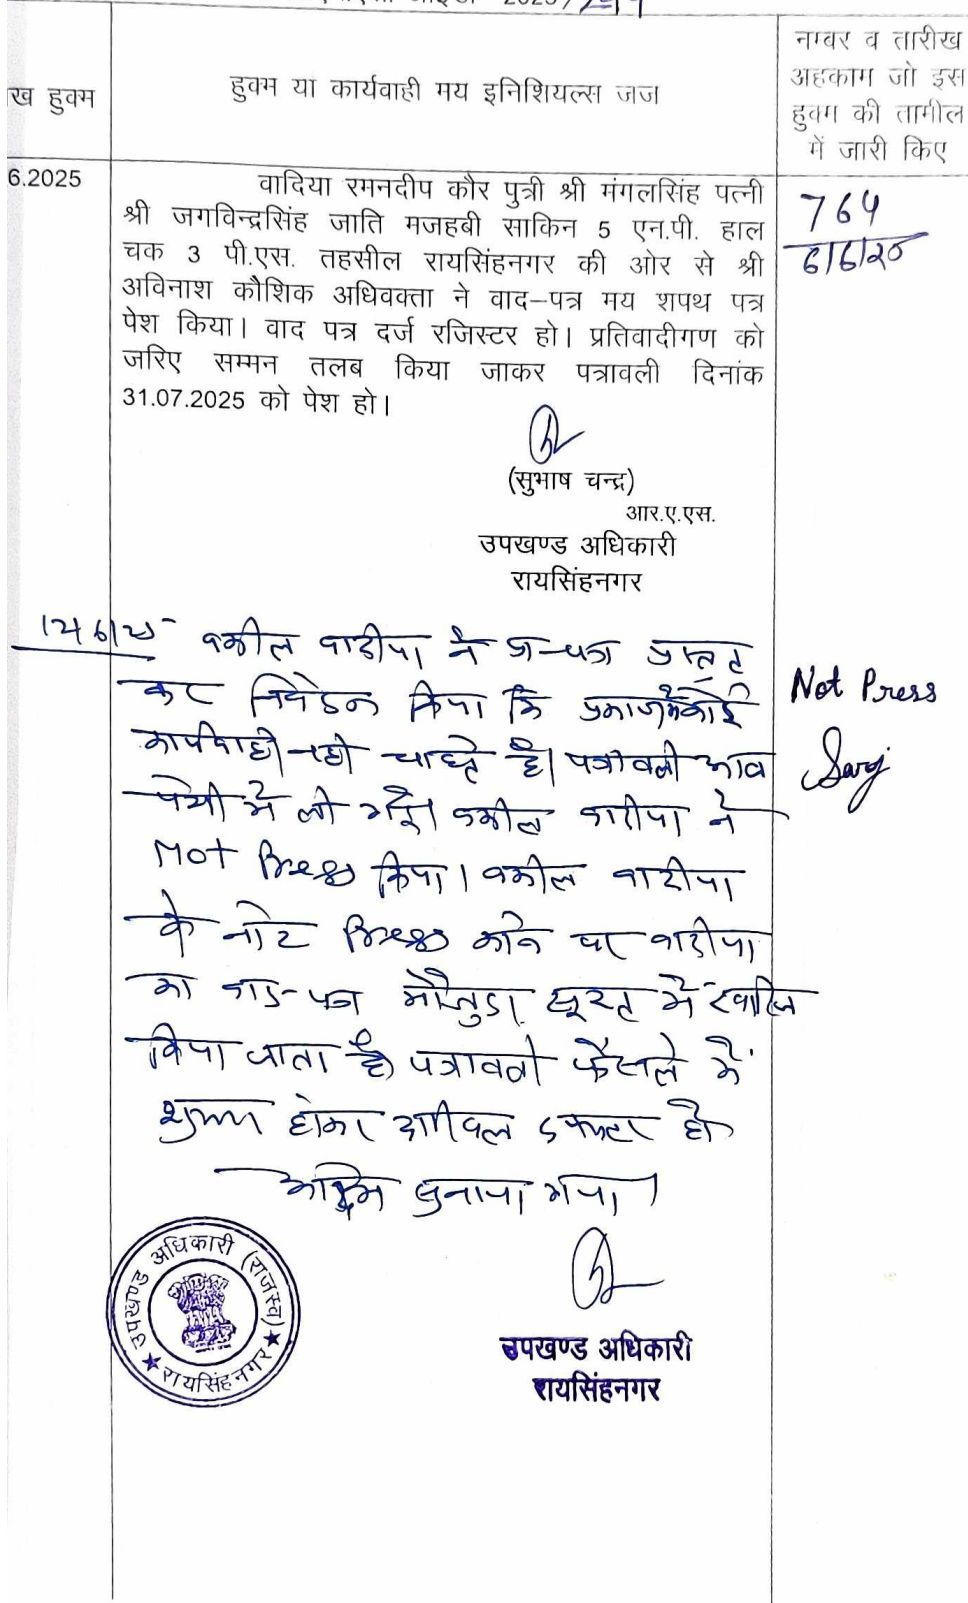 2025/
ख हुक्म
हुक्म या कार्यवाही मय इनिशियल्स जज
नम्बर व तारीख
अहकाम जो इस
हुक्म की तामील
में जारी किए
6.2025
वादिया रमनदीप कौर पुत्री श्री मंगलसिंह पत्नी
श्री जगविन्द्रसिंह जाति मजहबी साकिन 5 एन.पी. हाल
चक 3 पी.एस. तहसील रायसिंहनगर की ओर से श्री
अविनाश कौशिक अधिवक्ता ने वाद-पत्र मय शपथ पत्र
पेश किया। वाद पत्र दर्ज रजिस्टर हो। प्रतिवादीगण को
जरिए सम्मन तलब किया जाकर पत्रावली दिनांक
31.07.2025 को पेश हो।
764
6/6/25
(सुभाष चन्द्र)
आर.ए.एस.
उपखण्ड अधिकारी
रायसिंहनगर
वकील वादीया ने प्रा-पत्र प्रस्तुत
कर निवेदन किया कि में कोई
कार्यवाही नही चाहते है। पत्रावली आज
पेशी में ली गई। वकील वादीया ने
Not Press किया। वकील वादीया
के नोट Press करने पर वादीया
का वाद-पत्र मौजुदा सूरत में खारिज
किया जाता है। पत्रावली फैसले में
शुमार होकर दाखिल दफ्तर हो
सुनाया गया।
Not Press
उपखण्ड अधिकारी
रायसिंहनगर
उपखण्ड अधिकारी (राजस्व)
रायसिंहनगर